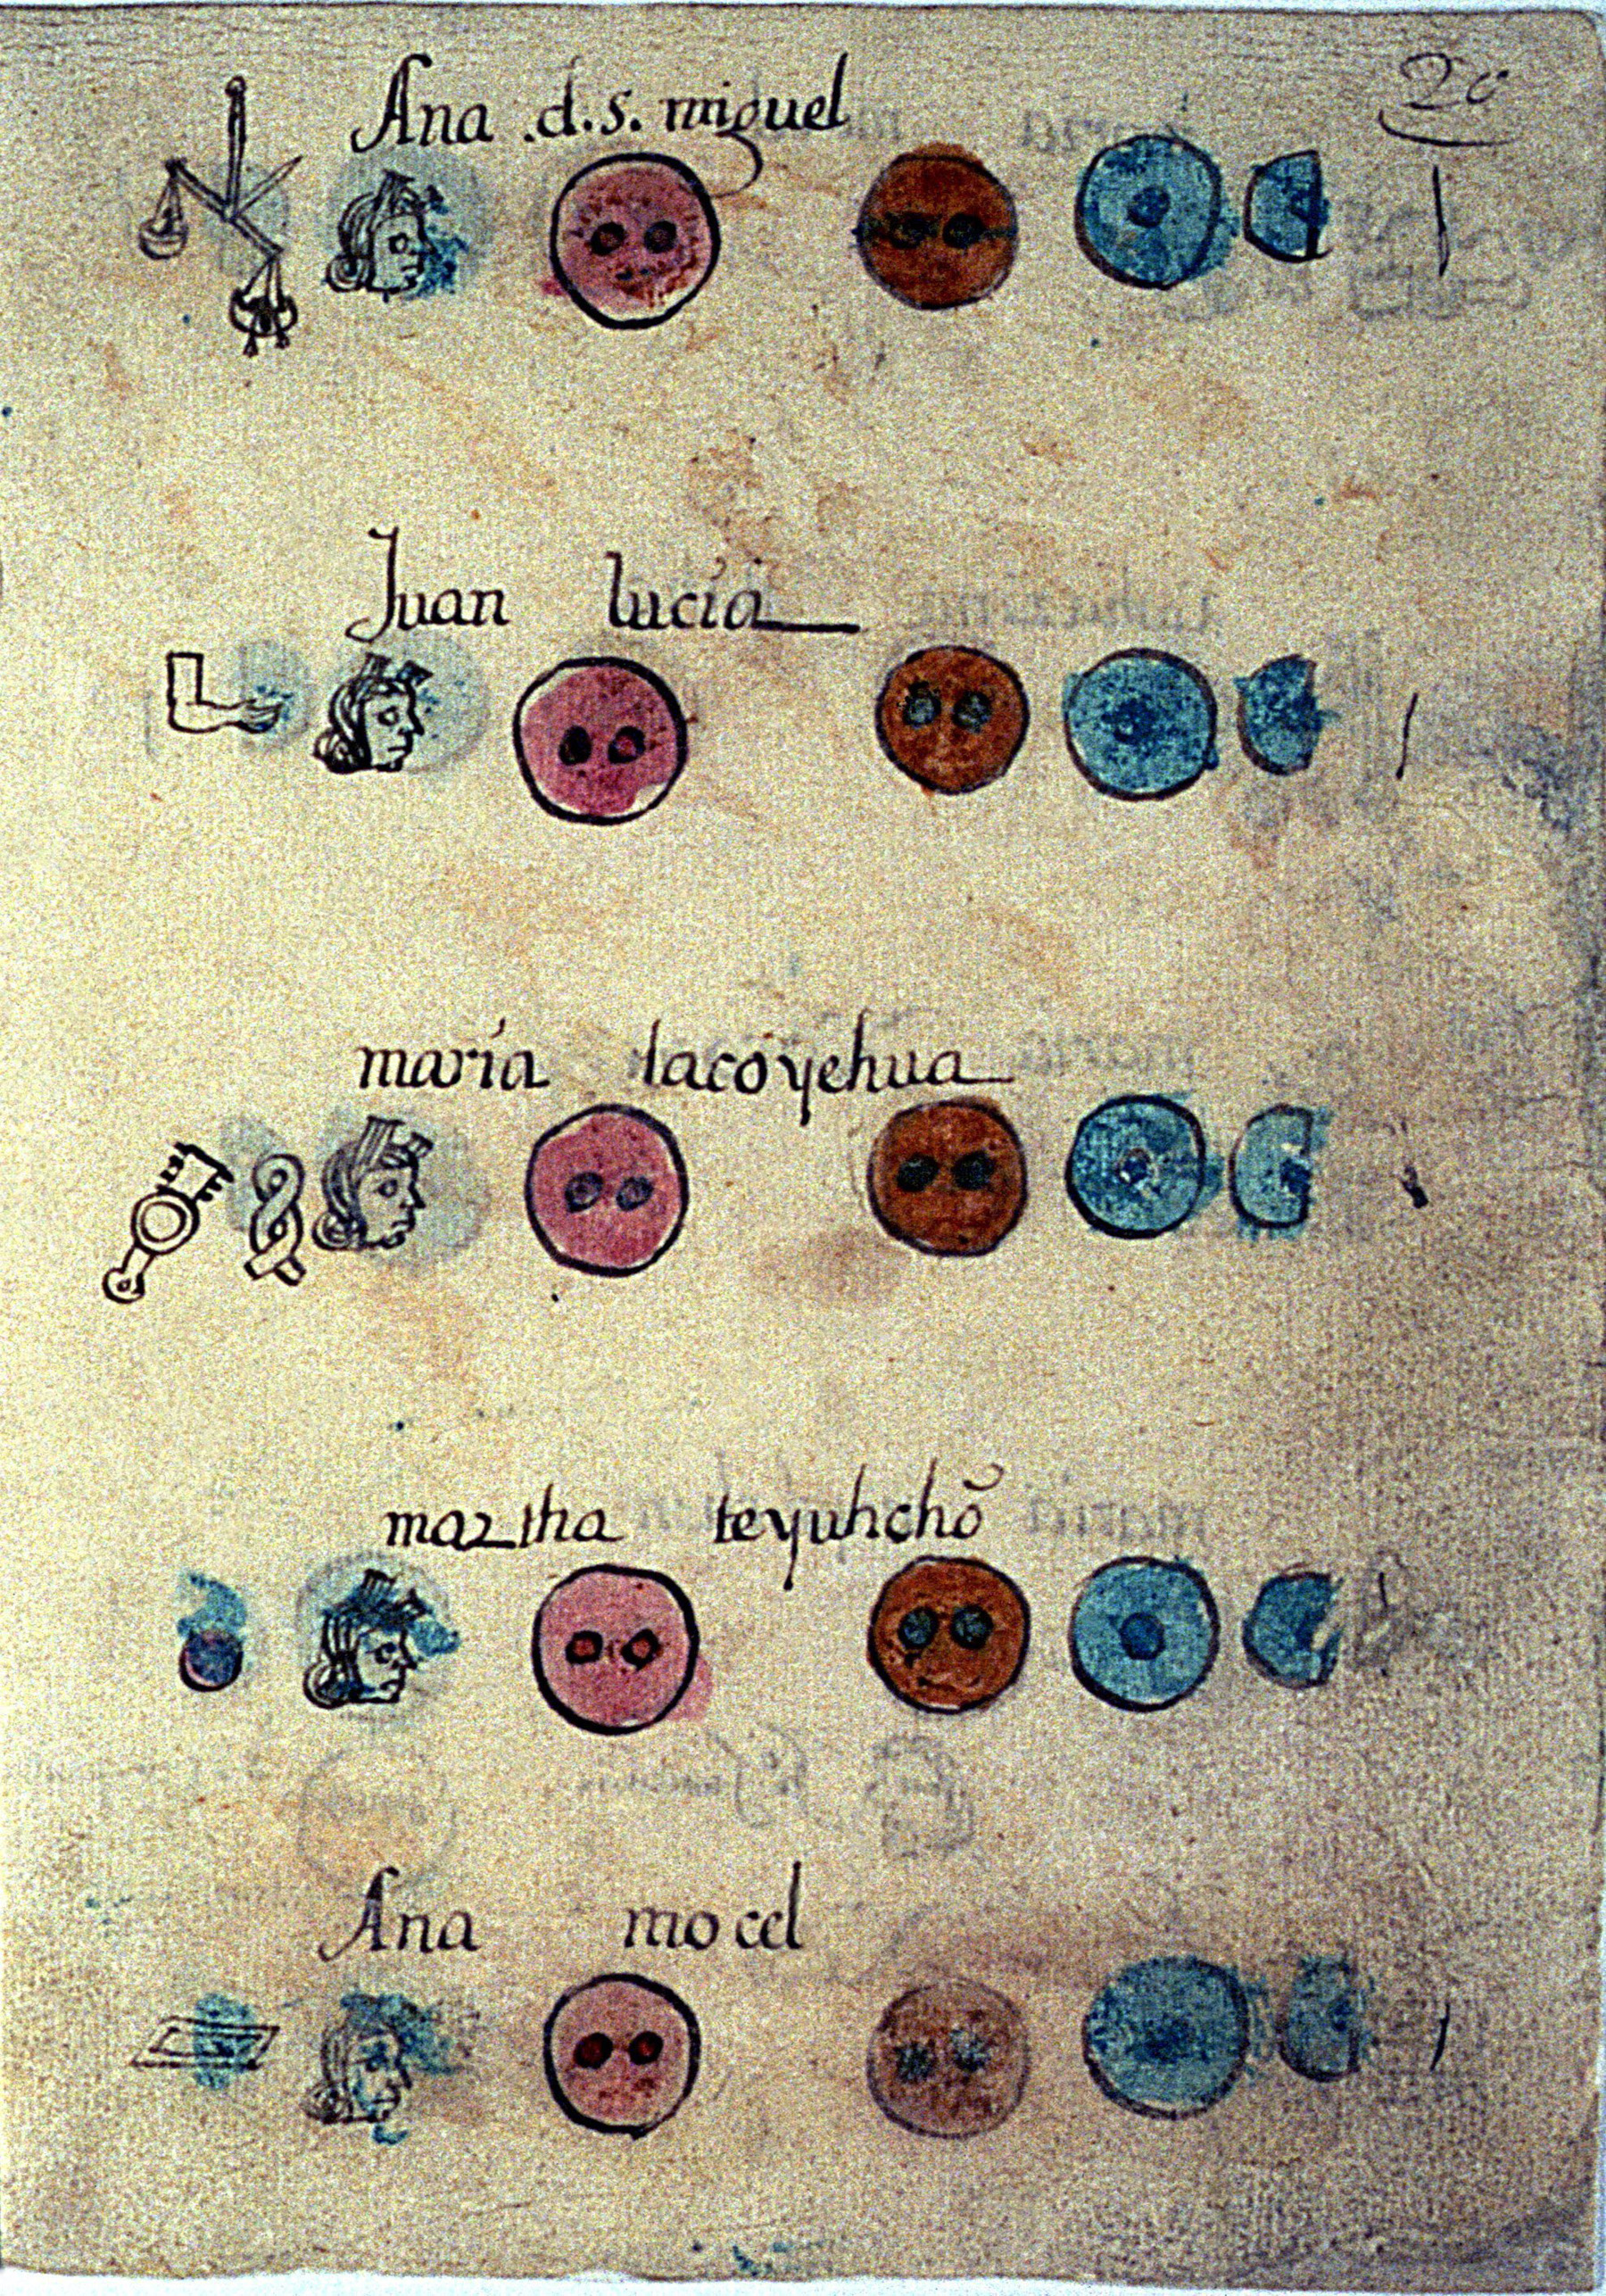 Ana .d.s. miguel
Juan lucia
maria tacoyehua
martha teyuhchõ
Ana mocel